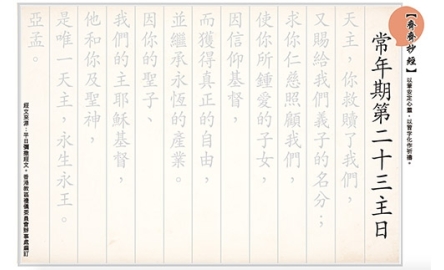 【齊齊抄經】
以筆安定心靈，以習字化作祈禱。
常年期第二十三主日
天主，你救贖了我們，
又賜給我們義子的名分；
求你仁慈照顧我們，
使你所鍾愛的子女，
因信仰基督，
而獲得真正的自由，
並繼承永恆的產業。
因你的聖子、
我們的主耶穌基督，
他和你及聖神，
是唯一天主，永生永王。
亞孟。
經文來源：平日彌撒經文，香港教區禮儀委員會辦事處編訂